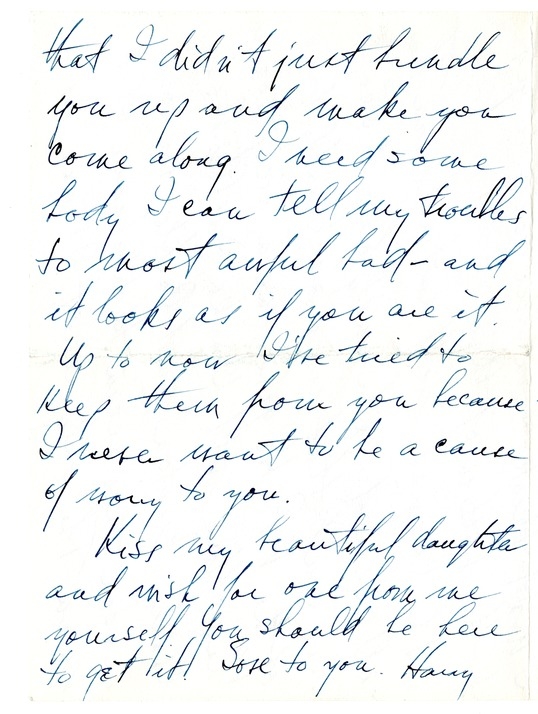 that I didn't just bundle
you up and make you
come along. I need some
body I can tell my troubles
to most awful bad – and
it looks as if you are it.
Up to now I've tried to
keep them from you because
I never want to be a cause
of worry to you.
Kiss my beautiful daughter
and wish for one from me
yourself. You should be here
to get it! Love to you. Harry